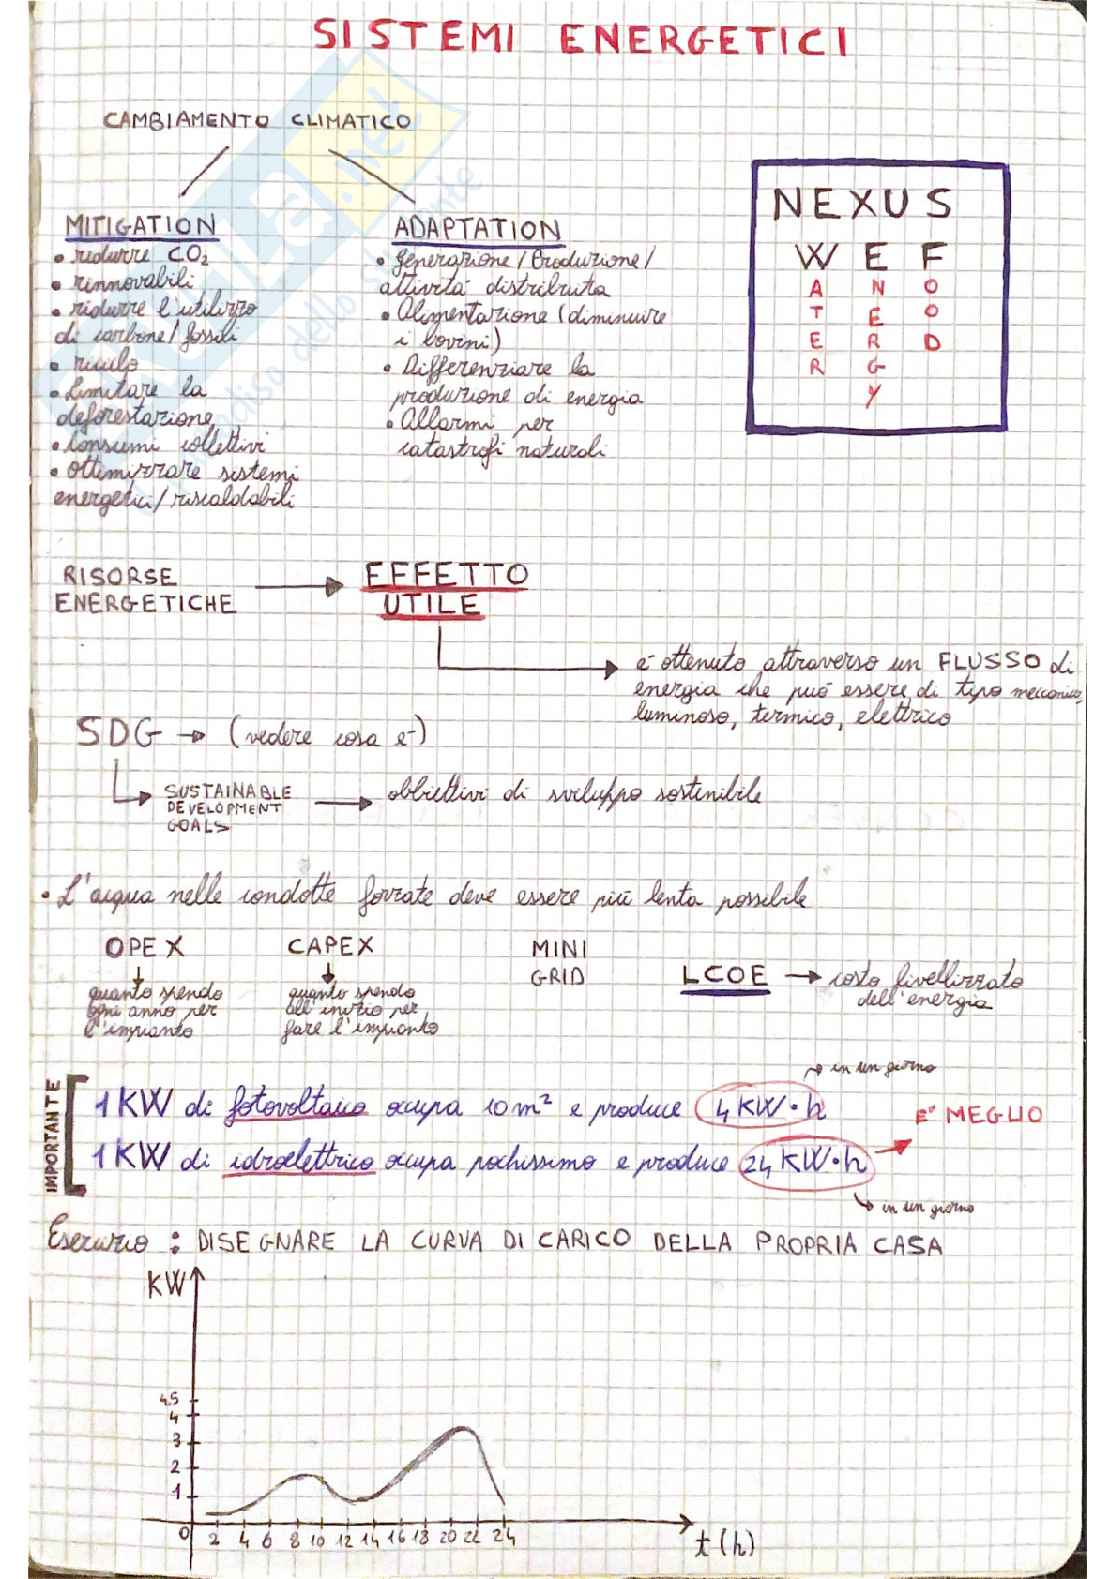 SISTEMI ENERGETICI
CAMBIAMENTO CLIMATICO
MITIGATION
• ridurre CO₂
• rinnovabili
• ridurre l'utilizzo
di carbone/fossili
• riciclo
• limitare la
deforestazione
• consumi collettivi
• ottimizzare sistemi
energetici/riscaldabili
ADAPTATION
• Generazione/Produzione/
attività distribuita
• Alimentazione (diminuire
i bovini)
• Differenziare la
produzione di energia
• Allarmi per
catastrofi naturali
NEXUS
WATER
ENERGY
FOOD
RISORSE
ENERGETICHE
EFFETTO
UTILE
è ottenuto attraverso un FLUSSO di
energia che può essere di tipo meccanico,
luminoso, termico, elettrico
SDG → (vedere cosa è)
SUSTAINABLE
DEVELOPMENT
GOALS
obbiettivi di sviluppo sostenibile
• L'acqua nelle condotte forzate deve essere più lenta possibile
OPEX
quanto spendo
ogni anno per
l'impianto
CAPEX
quanto spendo
all'inizio per
fare l'impianto
MINI
GRID
LCOE → costo livellizzato
dell'energia
IMPORTANTE
in un giorno
1 KW di fotovoltaico occupa 10 m² e produce 4 KW•h
E' MEGLIO
1 KW di idroelettrico occupa pochissimo e produce 24 KW•h
in un giorno
Esercizio : DISEGNARE LA CURVA DI CARICO DELLA PROPRIA CASA
KW
4.5
4
3
2
1
0 2 4 6 8 10 12 14 16 18 20 22 24
t (h)